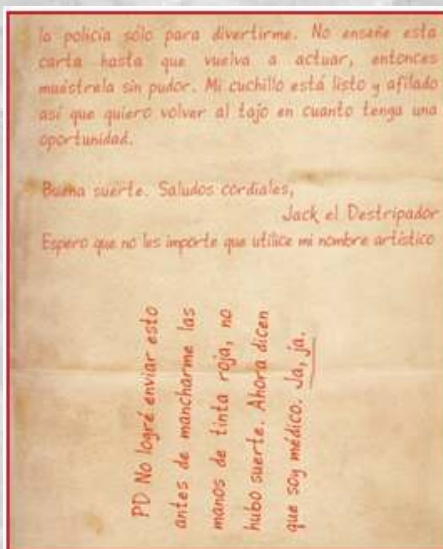 la policía sólo para divertirme. No enseñe esta
carta hasta que vuelva a actuar, entonces
muéstrela sin pudor. Mi cuchillo está listo y afilado
así que quiero volver al tajo en cuanto tenga una
oportunidad.
Buena suerte. Saludos cordiales,
Jack el Destripador
Espero que no les importe que utilice mi nombre artístico
PD No logré enviar esto
antes de mancharme las
manos de tinta roja, no
hubo suerte. Ahora dicen
que soy médico. Ja, ja.